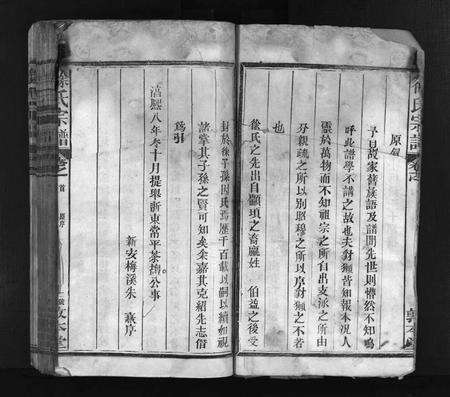 徐氏宗譜
原序
予見故家舊族語及譜問先世則懵然不知嗚
呼此譜學不講之故也夫豺獺皆知報本況人
靈於萬物而不知祖宗之所自出支派之所由
分親疏之所以別昭穆之所以序豺獺之不若
也
徐氏之先出自顓頊之裔嬴姓 伯益之後受
封於徐子孫因氏焉歷千百載以嗣以續如視
諸掌其子孫之賢可知矣余嘉其克紹先志俗
為引
淳熙八年冬十月提舉浙東常平茶鹽公事
新安梅溪朱 熹序
徐氏宗譜
卷之首
原序
敦本堂